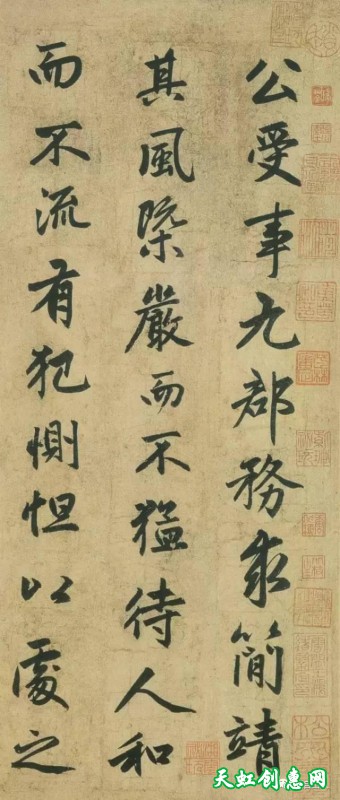 公受事九郡務求簡靖
其風槩嚴而不猛待人和
而不流有犯惻怛以處之
天虹创惠网